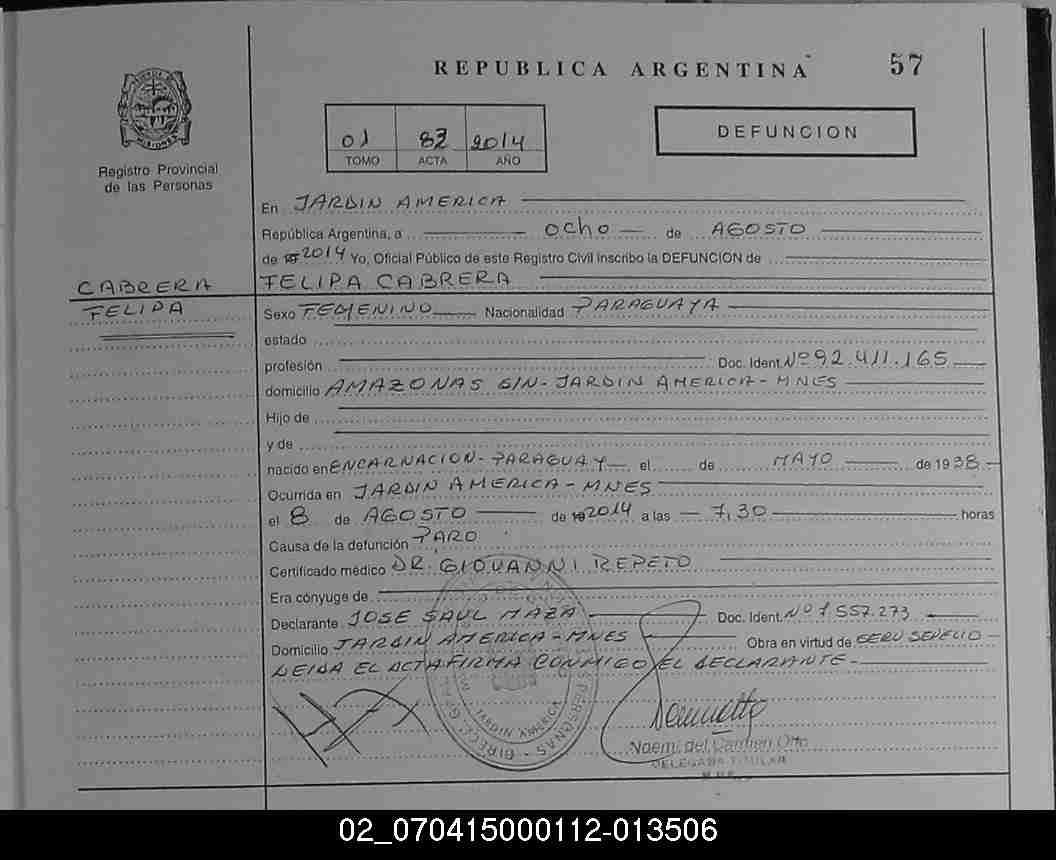 REPUBLICA ARGENTINA
57
01 82 2014
TOMO ACTA AÑO
DEFUNCION
MISIONES
Registro Provincial
de las Personas
En JARDIN AMERICA
República Argentina, a ocho de AGOSTO
de 19 2014 Yo, Oficial Público de este Registro Civil inscribo la DEFUNCION de
CABRERA
FELIPA CABRERA
FELIPA
Sexo FEMENINO Nacionalidad PARAGUAYA
estado
profesión Doc. Ident. Nº 92.411.165
domicilio AMAZONAS S/N - JARDIN AMERICA - MNES
Hijo de
y de
nacido en ENCARNACION - PARAGUAY el de MAYO de 1938
Ocurrida en JARDIN AMERICA - MNES
el 8 de AGOSTO de 19 2014 a las 7,30 horas
Causa de la defunción PARO
Certificado médico DR. GIOVANNI REPETO
Era cónyuge de
Declarante JOSE SAUL MAZA Doc. Ident. Nº 1.557.273
Domicilio JARDIN AMERICA - MNES Obra en virtud de SERV SEPELIO
LEIDA EL ACTA FIRMA CONMIGO EL DECLARANTE
JARDIN AMERICA
PERSONAS
Noemi del Carmen
DELEGADA TITULAR
02_070415000112-013506